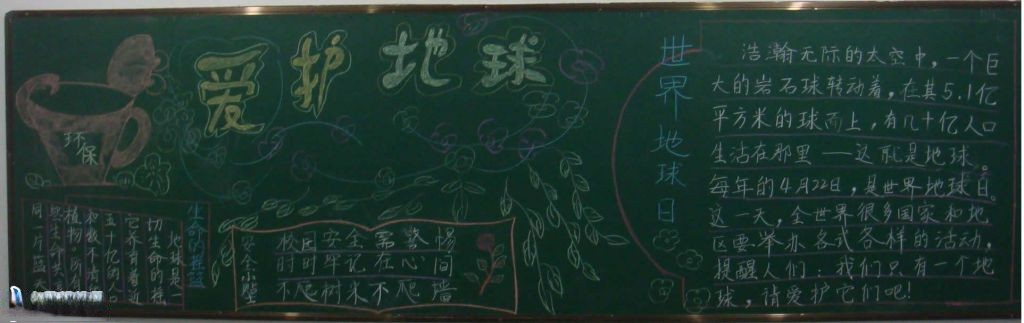 爱护地球
环保
生命的摇篮
地球是一
切生命的摇
它养育着近
五十亿的人口
安全小贴士
校园安全需警惕
时时牢记在心间
不爬树来不爬墙
世界地球日
浩瀚无际的太空中,一个巨
大的岩石球转动着,在其5.1亿
平方米的球面上,有几十亿人口
生活在那里——这就是地球。
每年的4月22日,是世界地球日。
这一天,全世界很多国家和地
区要举办各式各样的活动,
提醒人们:我们只有一个地
球,请爱护它们吧!